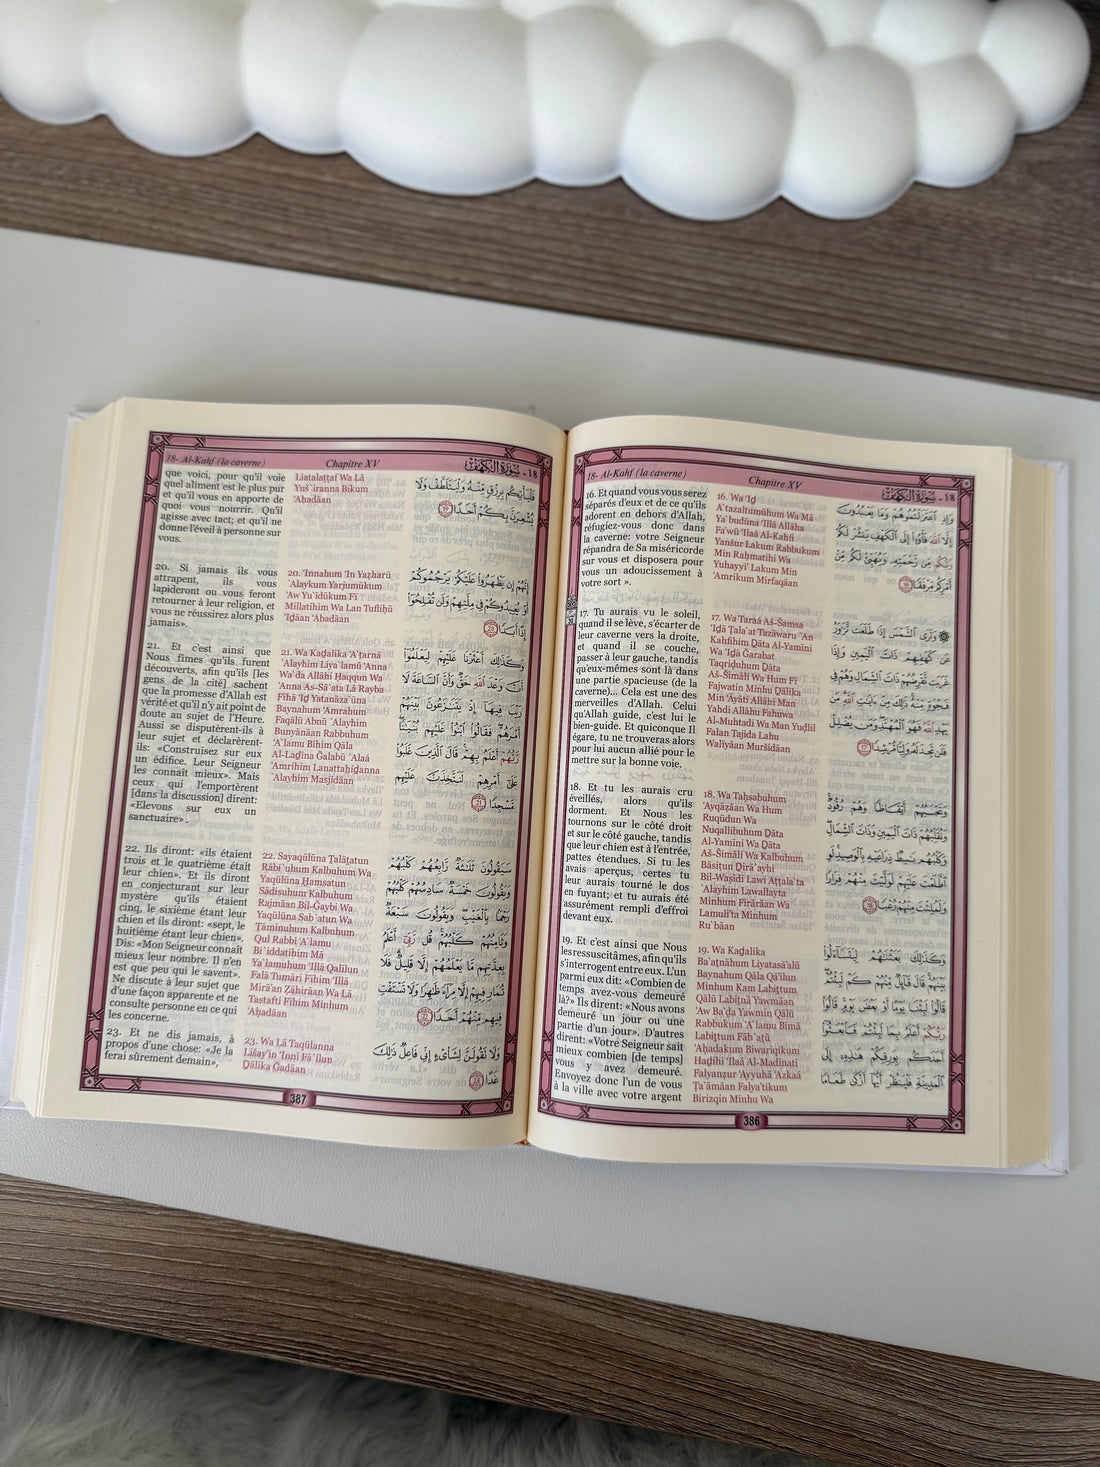 18- Al-Kahf (la caverne)
Chapitre XV
18 - سُورَةُ الكَهْف
16. Et quand vous vous serez
séparés d'eux et de ce qu'ils
adorent en dehors d'Allah,
réfugiez-vous donc dans
la caverne: votre Seigneur
répandra de Sa miséricorde
sur vous et disposera pour
vous un adoucissement à
votre sort ».
17. Tu aurais vu le soleil,
quand il se lève, s'écarter de
leur caverne vers la droite,
et quand il se couche,
passer à leur gauche, tandis
qu'eux-mêmes sont là dans
une partie spacieuse (de la
caverne)... Cela est une des
merveilles d'Allah. Celui
qu'Allah guide, c'est lui le
bien-guidé. Et quiconque Il
égare, tu ne trouveras alors
pour lui aucun allié pour le
mettre sur la bonne voie.
18. Et tu les aurais cru
éveillés, alors qu'ils
dorment. Et Nous les
tournons sur le côté droit
et sur le côté gauche, tandis
que leur chien est à l'entrée,
pattes étendues. Si tu les
avais aperçus, certes tu
leur aurais tourné le dos
en fuyant; et tu aurais été
assurément rempli d'effroi
devant eux.
19. Et c'est ainsi que Nous
les ressuscitâmes, afin qu'ils
s'interrogent entre eux. L'un
parmi eux dit: «Combien de
temps avez-vous demeuré
là?» Ils dirent: «Nous avons
demeuré un jour ou une
partie d'un jour». D'autres
dirent: «Votre Seigneur sait
mieux combien [de temps]
vous y avez demeuré.
Envoyez donc l'un de vous
à la ville avec votre argent
16. Wa 'Iḏ
A`tazaltumūhum Wa Mā
Ya`budūna 'Illā Allāha
Fa'wū 'Ilaá Al-Kahfi
Yanšur Lakum Rabbukum
Min Raḥmatihi Wa
Yuhayyi' Lakum Min
'Amrikum Mirfaqāan
17. Wa Taraá Aš-Šamsa
'Iḏā Ṭala`at Tazāwaru `An
Kahfihim Ḏāta Al-Yamīni
Wa 'Iḏā Ġarabat
Taqriḍuhum Ḏāta
Aš-Šimāli Wa Hum Fī
Fajwatin Minhu Ḏālika
Min 'Āyāti Allāhi Man
Yahdi Allāhu Fahuwa
Al-Muhtadi Wa Man Yuḍlil
Falan Tajida Lahu
Walīyāan Muršidāan
18. Wa Taḥsabuhum
'Ayqāẓāan Wa Hum
Ruqūdun Wa
Nuqallibuhum Ḏāta
Al-Yamīni Wa Ḏāta
Aš-Šimāli Wa Kalbuhum
Bāsiṭun Ḏirā`ayhi
Bil-Waṣīdi Lawi Aṭṭala`ta
`Alayhim Lawallayta
Minhum Firārāan Wa
Lamuli'ta Minhum
Ru`bāan
19. Wa Kaḏalika
Ba`aṯnāhum Liyatasā'alū
Baynahum Qāla Qā'ilun
Minhum Kam Labiṯtum
Qālū Labiṯnā Yawmāan
'Aw Ba`ḍa Yawmin Qālū
Rabbukum 'A`lamu Bimā
Labiṯtum Fāb`aṯū
'Aḥadakum Biwariqikum
Haḏihi 'Ilaá Al-Madīnati
Falyanẓur 'Ayyuhā 'Azkaá
Ṭa`āmāan Falya'tikum
Birizqin Minhu Wa
وَإِذِ اعْتَزَلْتُمُوهُمْ وَمَا يَعْبُدُونَ
إِلَّا اللَّهَ فَأْوُوا إِلَى الْكَهْفِ يَنشُرْ لَكُمْ
رَبُّكُم مِّن رَّحْمَتِهِ وَيُهَيِّئْ لَكُم مِّنْ
أَمْرِكُم مِّرْفَقًا
وَتَرَى الشَّمْسَ إِذَا طَلَعَت تَّزَاوَرُ
عَن كَهْفِهِمْ ذَاتَ الْيَمِينِ وَإِذَا
غَرَبَت تَّقْرِضُهُمْ ذَاتَ الشِّمَالِ وَهُمْ فِي
فَجْوَةٍ مِّنْهُ ذَلِكَ مِنْ آيَاتِ اللَّهِ مَن
يَهْدِ اللَّهُ فَهُوَ الْمُهْتَدِ وَمَن يُضْلِلْ
فَلَن تَجِدَ لَهُ وَلِيًّا مُّرْشِدًا
وَتَحْسَبُهُمْ أَيْقَاظًا وَهُمْ رُقُودٌ
وَنُقَلِّبُهُمْ ذَاتَ الْيَمِينِ وَذَاتَ الشِّمَالِ
وَكَلْبُهُم بَاسِطٌ ذِرَاعَيْهِ بِالْوَصِيدِ لَوِ
اطَّلَعْتَ عَلَيْهِمْ لَوَلَّيْتَ مِنْهُمْ فِرَارًا
وَلَمُلِئْتَ مِنْهُمْ رُعْبًا
وَكَذَلِكَ بَعَثْنَاهُمْ لِيَتَسَاءَلُوا
بَيْنَهُمْ قَالَ قَائِلٌ مِّنْهُمْ كَمْ لَبِثْتُمْ
قَالُوا لَبِثْنَا يَوْمًا أَوْ بَعْضَ يَوْمٍ قَالُوا
رَبُّكُمْ أَعْلَمُ بِمَا لَبِثْتُمْ فَابْعَثُوا
أَحَدَكُم بِوَرِقِكُمْ هَذِهِ إِلَى
الْمَدِينَةِ فَلْيَنظُرْ أَيُّهَا أَزْكَى طَعَامًا
386
18- Al-Kahf (la caverne)
Chapitre XV
18 - سُورَةُ الكَهْف
que voici, pour qu'il voie
quel aliment est le plus pur
et qu'il vous en apporte de
quoi vous nourrir. Qu'il
agisse avec tact; et qu'il ne
donne l'éveil à personne sur
vous.
20. Si jamais ils vous
attrapent, ils vous
lapideront ou vous feront
retourner à leur religion, et
vous ne réussirez alors plus
jamais».
21. Et c'est ainsi que
Nous fîmes qu'ils furent
découverts, afin qu'ils [les
gens de la cité] sachent
que la promesse d'Allah est
vérité et qu'il n'y ait point de
doute au sujet de l'Heure.
Aussi se disputèrent-ils à
leur sujet et déclarèrent-
ils: «Construisez sur eux
un édifice. Leur Seigneur
les connaît mieux». Mais
ceux qui l'emportèrent
[dans la discussion] dirent:
«Elevons sur eux un
sanctuaire».
22. Ils diront: «ils étaient
trois et le quatrième était
leur chien». Et ils diront
en conjecturant sur leur
mystère qu'ils étaient
cinq, le sixième étant leur
chien et ils diront: «sept, le
huitième étant leur chien».
Dis: «Mon Seigneur connaît
mieux leur nombre. Il n'en
est que peu qui le savent».
Ne discute à leur sujet que
d'une façon apparente et ne
consulte personne en ce qui
les concerne.
23. Et ne dis jamais, à
propos d'une chose: «Je la
ferai sûrement demain»,
Liatalaṭṭaf Wa Lā
Yuš`iranna Bikum
'Aḥadāan
20. 'Innahum 'In Yaẓharū
`Alaykum Yarjumūkum
'Aw Yu`īdūkum Fī
Millatihim Wa Lan Tufliḥū
'Iḏāan 'Abadāan
21. Wa Kaḏalika 'A`ṯarnā
`Alayhim Liya`lamū 'Anna
Wa`da Allāhi Ḥaqqun Wa
'Anna As-Sā`ata Lā Rayba
Fīhā 'Iḏ Yatanāza`ūna
Baynahum 'Amrahum
Faqālū Abnū `Alayhim
Bunyānāan Rabbuhum
'A`lamu Bihim Qāla
Al-Laḏīna Ġalabū `Alaá
'Amrihim Lanattaḫiḏanna
`Alayhim Masjidāan
22. Sayaqūlūna Ṯalāṯatun
Rābi`uhum Kalbuhum Wa
Yaqūlūna Ḫamsatun
Sādisuhum Kalbuhum
Rajmāan Bil-Ġaybi Wa
Yaqūlūna Sab`atun Wa
Ṯāminuhum Kalbuhum
Qul Rabbī 'A`lamu
Bi`iddatihim Mā
Ya`lamuhum 'Illā Qalīlun
Falā Tumāri Fīhim 'Illā
Mirā'an Ẓāhirāan Wa Lā
Tastafti Fīhim Minhum
'Aḥadāan
23. Wa Lā Taqūlanna
Lišay'in 'Innī Fā`ilun
Ḏālika Ġadāan
فَلْيَأْتِكُم بِرِزْقٍ مِّنْهُ وَلْيَتَلَطَّفْ وَلَا
يُشْعِرَنَّ بِكُمْ أَحَدًا
إِنَّهُمْ إِن يَظْهَرُوا عَلَيْكُمْ يَرْجُمُوكُمْ
أَوْ يُعِيدُوكُمْ فِي مِلَّتِهِمْ وَلَن تُفْلِحُوا
إِذًا أَبَدًا
وَكَذَلِكَ أَعْثَرْنَا عَلَيْهِمْ لِيَعْلَمُوا
أَنَّ وَعْدَ اللَّهِ حَقٌّ وَأَنَّ السَّاعَةَ لَا
رَيْبَ فِيهَا إِذْ يَتَنَازَعُونَ بَيْنَهُمْ
أَمْرَهُمْ فَقَالُوا ابْنُوا عَلَيْهِم بُنْيَانًا
رَّبُّهُمْ أَعْلَمُ بِهِمْ قَالَ الَّذِينَ غَلَبُوا
عَلَى أَمْرِهِمْ لَنَتَّخِذَنَّ عَلَيْهِم
مَّسْجِدًا
سَيَقُولُونَ ثَلَاثَةٌ رَّابِعُهُمْ كَلْبُهُمْ
وَيَقُولُونَ خَمْسَةٌ سَادِسُهُمْ كَلْبُهُمْ
رَجْمًا بِالْغَيْبِ وَيَقُولُونَ سَبْعَةٌ
وَثَامِنُهُمْ كَلْبُهُمْ قُل رَّبِّي أَعْلَمُ
بِعِدَّتِهِم مَّا يَعْلَمُهُمْ إِلَّا قَلِيلٌ فَلَا
تُمَارِ فِيهِمْ إِلَّا مِرَاءً ظَاهِرًا وَلَا تَسْتَفْتِ
فِيهِم مِّنْهُمْ أَحَدًا
وَلَا تَقُولَنَّ لِشَيْءٍ إِنِّي فَاعِلٌ ذَلِكَ
غَدًا
387